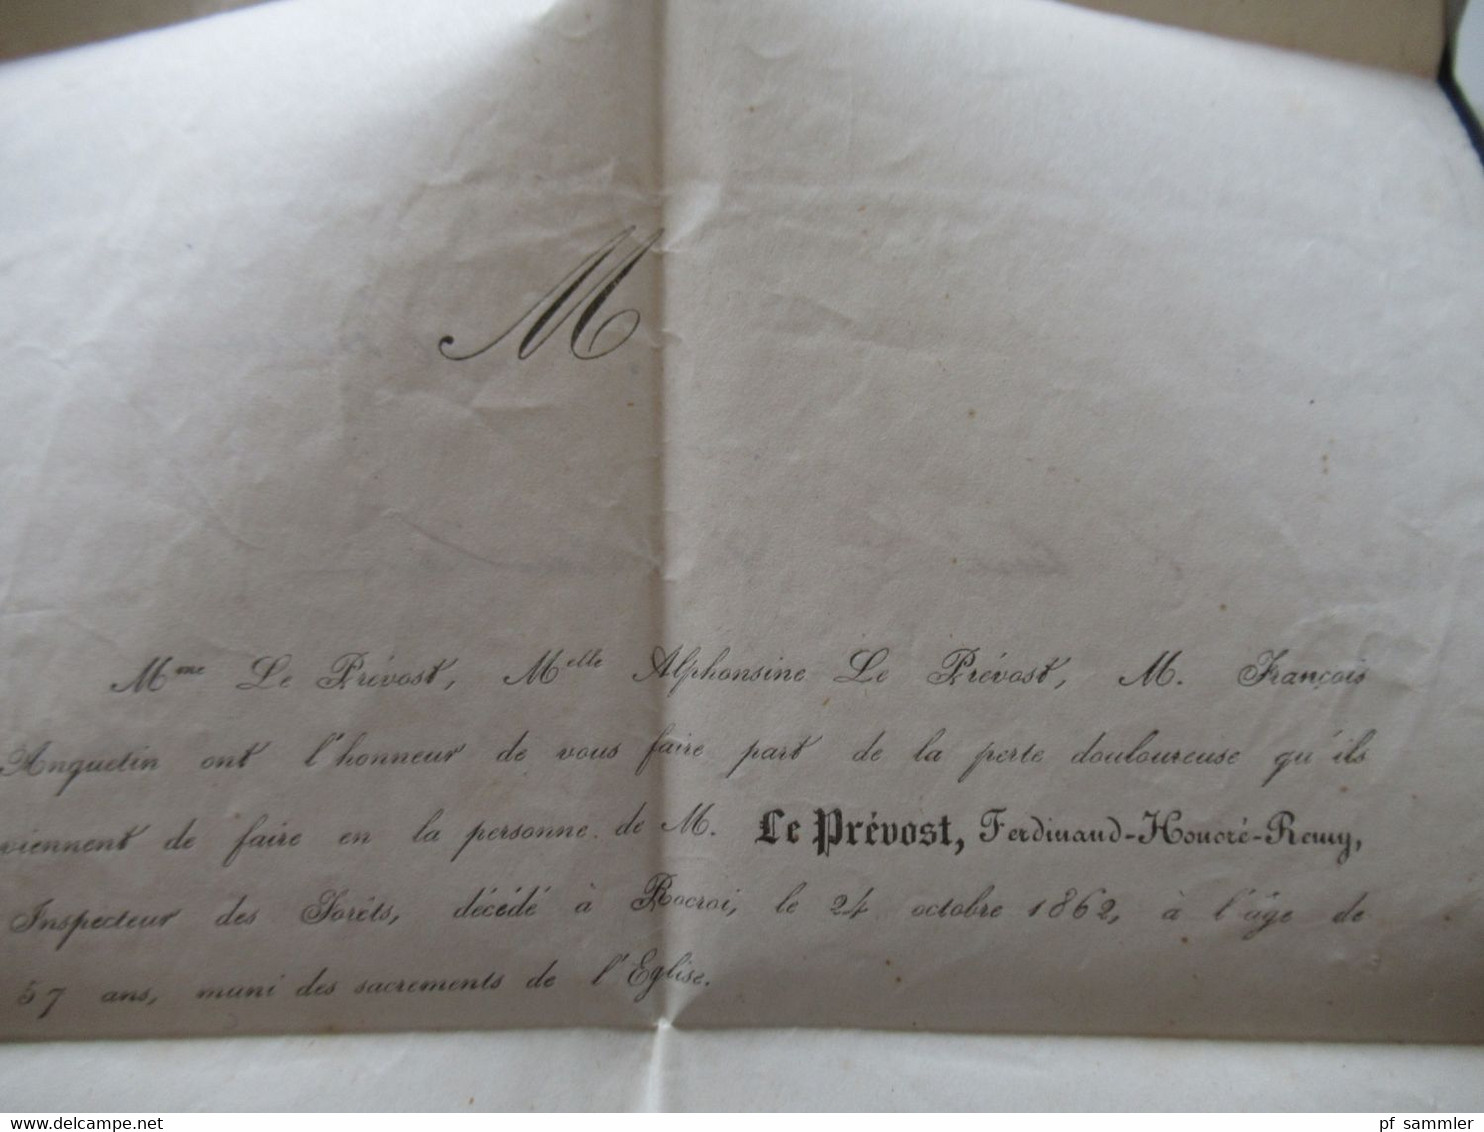 M
Mme Le Prévost, Melle Alphonsine Le Prévost, M. François
Anquetin ont l'honneur de vous faire part de la perte douloureuse qu'ils
viennent de faire en la personne de M. Le Prévost, Ferdinand-Honoré-Remy,
Inspecteur des Forêts, décédé à Rocroi, le 24 octobre 1862, à l'âge de
57 ans, muni des sacrements de l'Eglise.
delcampe.net
pf sammler